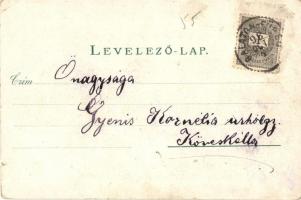 55
LEVELEZŐ-LAP.
Czím
Őnagysága
Gyenis Kornélia úrhölgy.
Köveskálla